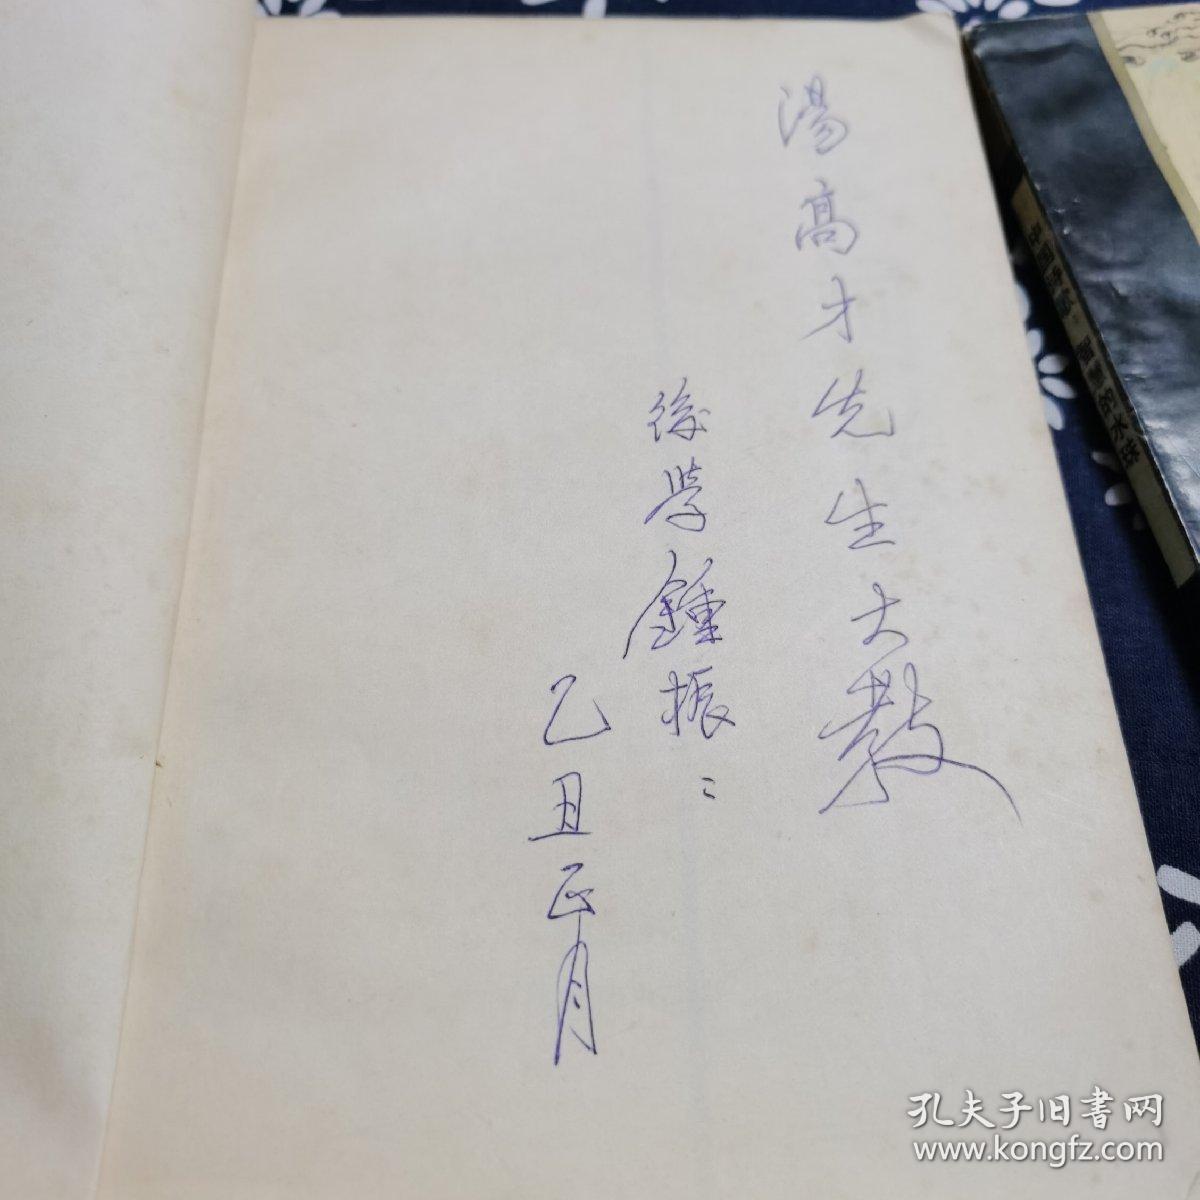 湯高才先生大教
後学鍾振振
乙丑正月
孔夫子旧書网
www.kongfz.com